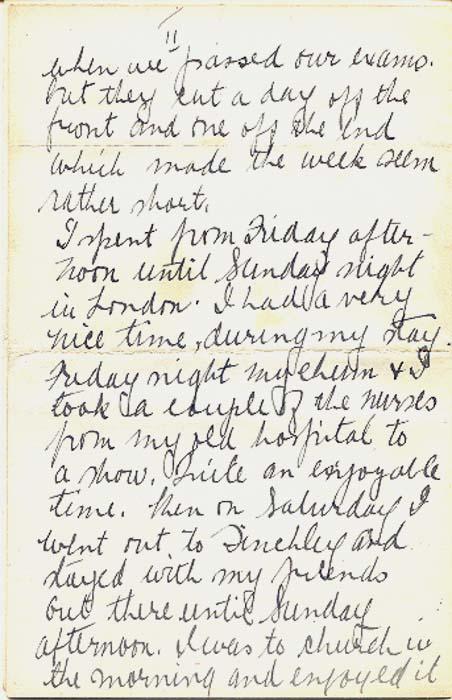 "
when we passed our exams.
but they cut a day off the
front and one off the end
which made the week seem
rather short.
I spent from Friday after-
noon until Sunday night
in London. I had a very
nice time, during my stay.
Friday night my chum & I
took a couple of the nurses
from my old hospital to
a show, Quite an enjoyable
time. Then on Saturday I
went out to Finchley and
stayed with my friends
out there until Sunday
afternoon. I was to church in
the morning and enjoyed it